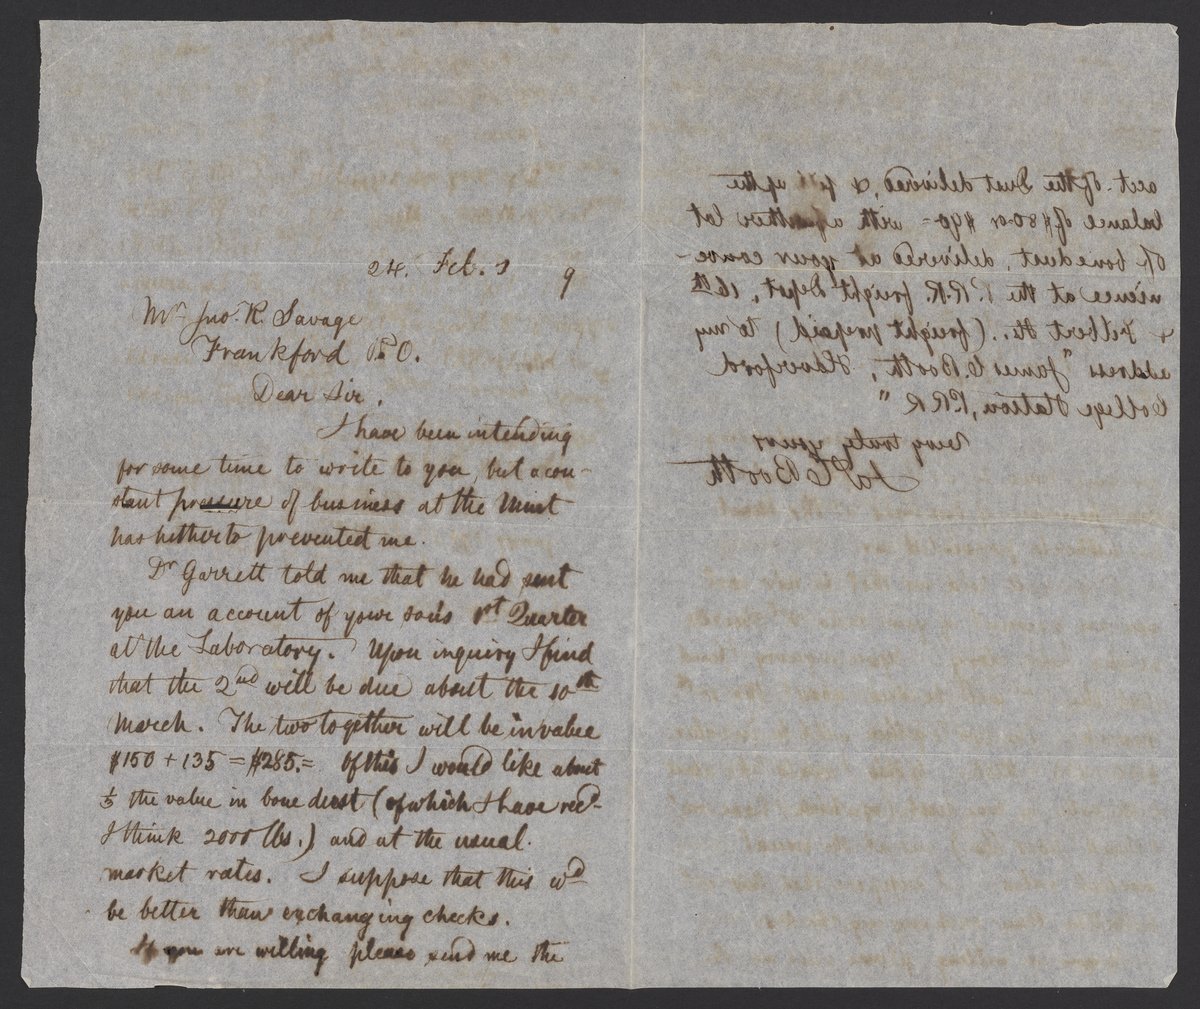 24. Feb. 9
Mr. Jno. R. Savage
Frankford P.O.
Dear Sir,
I have been intending
for some time to write to you, but a con-
stant pressure of business at the Mint
has hitherto prevented me.
Dr Garrett told me that he had sent
you an account of your son's 1st Quarter
at the Laboratory. Upon inquiry I find
that the 2nd will be due about the 10th
March. The two together will be in value
$150 + 135 = $285.= Of this I would like about
the value in bone dust (of which I have recd.
I think 2000 lbs.) and at the usual
market rates. I suppose that this wd
be better than exchanging checks.
If you are willing please send me the
acct. of the Dust delivered, & fill up the
balance of $80 or $90 = with another lot
of bonedust, delivered at your conve-
nience at the P.R.R. freight Depot, 16th
+ Filbert Sts.. (freight prepaid) to my
address "James C. Booth, Haverford
College Station, P.R.R"
Very truly yours
Jas C Booth